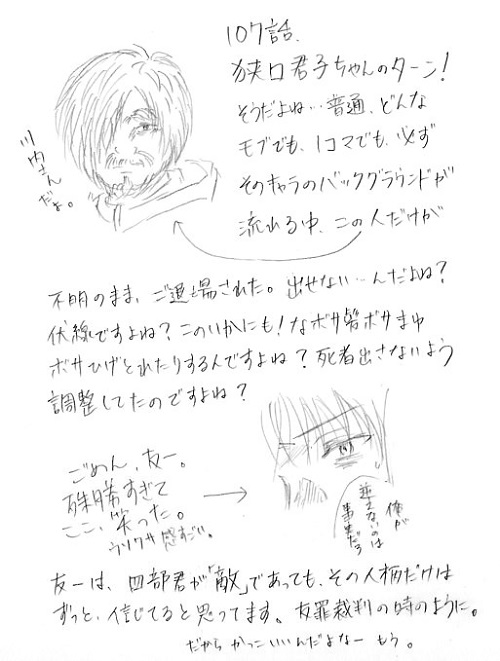 107話、
狭口君子ちゃんのターン!
そうだよね…普通、どんな
モブでも、1コマでも、必ず
そのキャラのバックグラウンドが
流れる中、この人だけが
川内さんだよ。
不明のまま、ご退場された。出せない…んだよね?
伏線ですよね?このいかにも!なボサ髪ボサまゆ
ボサひげとれたりするんですよね?死者出さないよう
調整してたのですよね?
ごめん、友一。
殊勝すぎて
ここ、笑った。
ウソクサ感すごい。
俺が
並さないのは
事実だろ
友一は、四部君が「敵」であっても、その人柄だけは
ずっと、信じてると思ってます。友罪裁判の時のように。
だから かっこいいんだよなー もう。